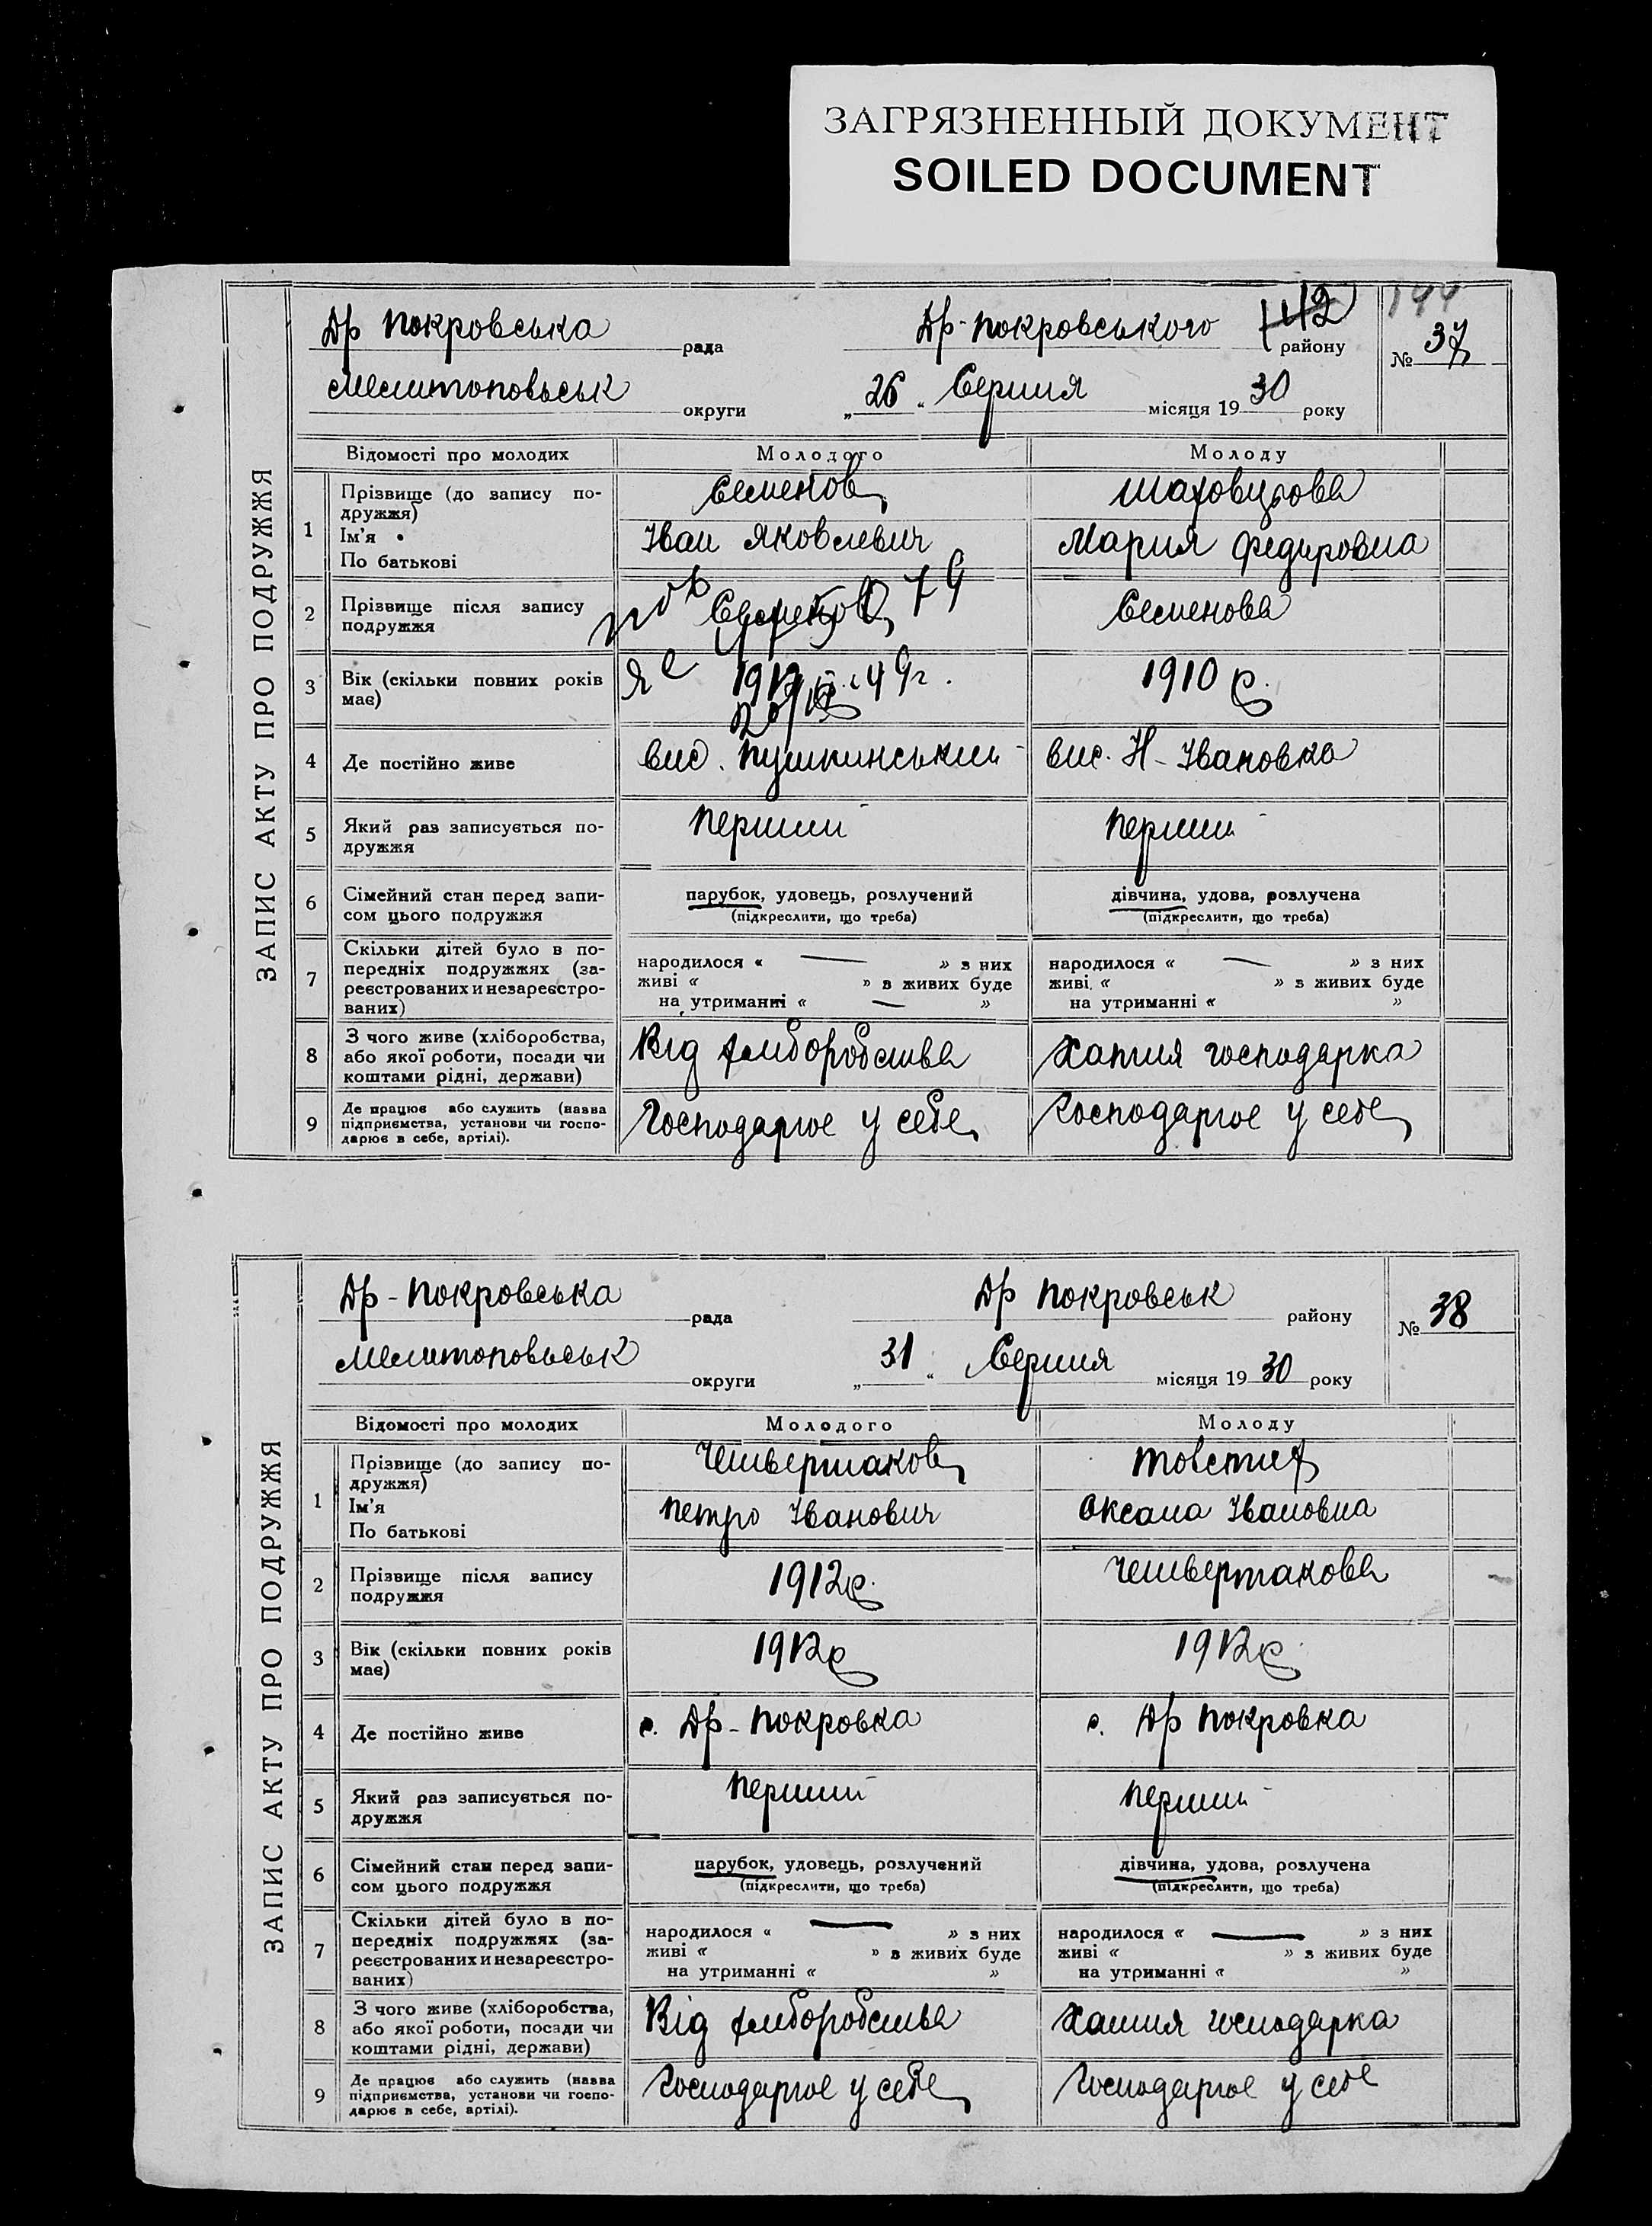 ЗАГРЯЗНЕННЫЙ ДОКУМЕНТ
SOILED DOCUMENT
ЗАПИС АКТУ ПРО ПОДРУЖЖЯ
Др Покровська рада Др-Покровського району 142 144
№ 37
Мелитопольськ округи „26“ Серпня місяця 1930 року
Відомості про молодих Молодого Молоду
1 Прізвище (до запису по-
дружжя)
Ім'я
По батькові
Семенов
Іван Яковлевич
Шаховцова
Мария Федировна
2 Прізвище після запису
подружжя
Семенов
Семенова
3 Вік (скільки повних років
має)
1910 р.
4 Де постійно живе
вис. Пушкинський
вис. Н-Івановка
5 Який раз записується по-
дружжя
Перший
Перший
6 Сімейний стан перед запи-
сом цього подружжя
парубок, удовець, розлучений
(підкреслити, що треба)
дівчина, удова, розлучена
(підкреслити, що треба)
7 Скільки дітей було в по-
передніх подружжях (за-
реєстрованих и незареєстро-
ваних)
народилося « — » з них
живі « » в живих буде
на утриманні « — »
народилося « — » з них
живі « » в живих буде
на утриманні « »
8 З чого живе (хліборобства,
або якої роботи, посади чи
коштами рідні, держави)
Від хліборобства
Хатня господарка
9 Де працює або служить (назва
підприємства, установи чи госпо-
дарює в себе, артілі).
Господарює у себе
Господарює у себе
ЗАПИС АКТУ ПРО ПОДРУЖЖЯ
Др-Покровська рада Др Покровськ району
№ 38
Мелитопольськ округи „31“ Серпня місяця 1930 року
Відомості про молодих Молодого Молоду
1 Прізвище (до запису по-
дружжя)
Ім'я
По батькові
Четвертаков
Петро Іванович
Товстих
Оксана Івановна
2 Прізвище після запису
подружжя
1912р.
Четвертакова
3 Вік (скільки повних років
має)
1912р
1912р.
4 Де постійно живе
с. Др-Покровка
с. Др Покровка
5 Який раз записується по-
дружжя
Перший
Перший
6 Сімейний стан перед запи-
сом цього подружжя
парубок, удовець, розлучений
(підкреслити, що треба)
дівчина, удова, розлучена
(підкреслити, що треба)
7 Скільки дітей було в по-
передніх подружжях (за-
реєстрованих и незареєстро-
ваних)
народилося « — » з них
живі « » в живих буде
на утриманні « »
народилося « — » з них
живі « » з живих буде
на утриманні « »
8 З чого живе (хліборобства,
або якої роботи, посади чи
коштами рідні, держави)
Від хліборобства
Хатня господарка
9 Де працює або служить (назва
підприємства, установи чи госпо-
дарює в себе, артілі).
Господарює у себе
Господарює у себе